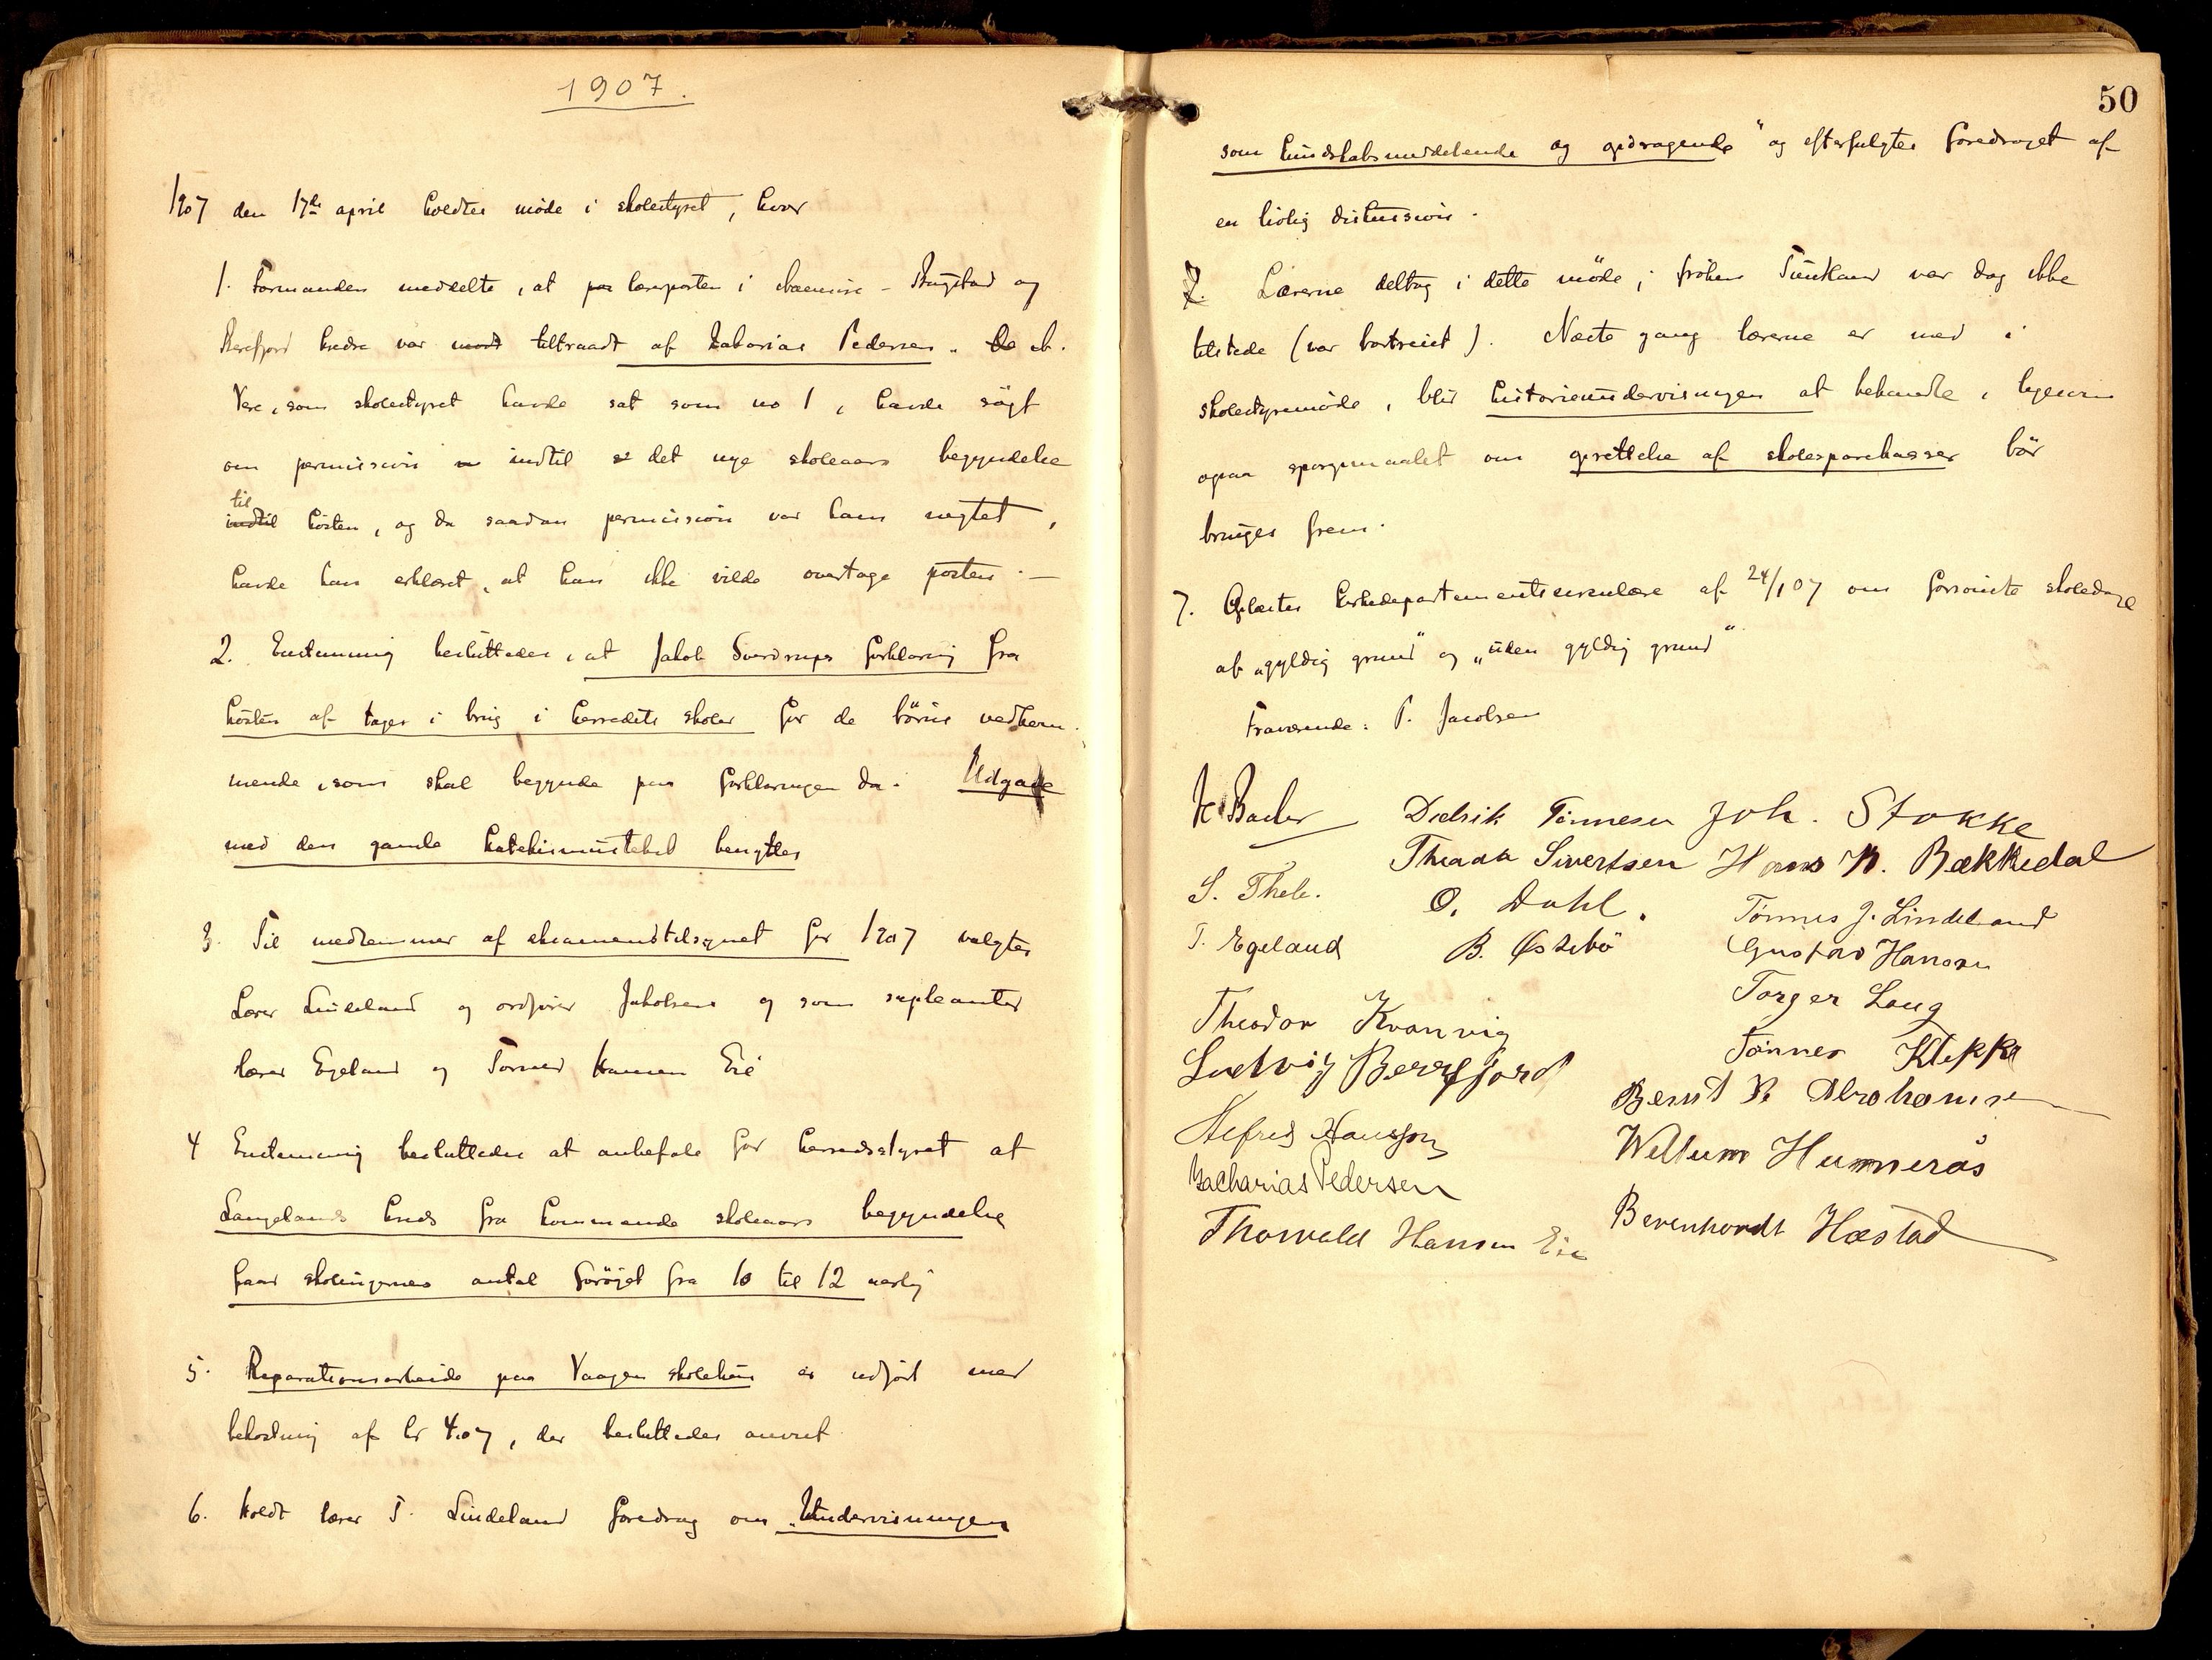 1907.
1907 den 17de april holdtes møde i skolestyret, hvor
1. Formanden meddelte, at lærerposten i - Bugstad og
kredse var tiltraadt af Zakarias Pedersen.
som skolestyret havde sat som no 1, havde søgt
om permission indtil det nye skoleaars begyndelse
til
indtil høsten, og da saadan permission var ham negtet,
havde han erklæret, at han ikke vilde overtage posten. —
2. Enstemmig besluttedes, at Jakob Sverdrups forklaring fra
høsten af tages i brug i herredets skoler for de børns vedkom-
mende, som skal begynde paa forklaringen da. Udgave
med den gamle katekismustekst benyttes
3. Til medlemmer af eksamenstilsynet for 1907 valgtes
Lærer Lindeland og ordfører Jakobsen og som supleanter
lærer Egeland og Hansen Eie
4 Enstemmig besluttedes at anbefale for herredsstyret at
Langelands kreds fra kommende skoleaars begyndelse
faar skoleugernes antal forøjet fra 10 til 12 aarlig
5. Reparationsarbeide paa Vaagen skolehus er udført med
bekostning af kr 4.07, der besluttedes anvist.
6. Holdt lærer T. Lindeland foredrag om „Undervisningen
50
som kundskabsmeddelende og opdragende" og efterfulgtes foredraget af
en livlig diskussion.
7. Lærerne deltog i dette møde; frøken var dog ikke
tilstede (var bortreist). Næste gang lærerne er med i
skolestyremøde, blir historieundervisningen at behandle, ligesom
ogsaa spørgsmaalet om oprettelse af skolesparekasser bør
bringes frem.
7. Oplæstes Kirkedepartementscirculære af 24/1 07 om forsømte skoledage
af „gyldig grund" og „uden gyldig grund"
Fraværende: P. Jacobsen
Didrik Tønnesen Joh. Stokke
Sivertsen Hans K. Bækkedal
S. Thele. O. Dahl. Tønnes J. Lindeland
T. Egeland B. Østebø Gustav Hansen
Theodor Kvanvig Torger Laug
Ludvig Berrefjord Tønnes Klepke
Alfred Hansson Bernt R Abrahamsen
Zacharias Pedersen Willum Hummerås
Thorvald Hansen Eie Berenhardt Hæstad